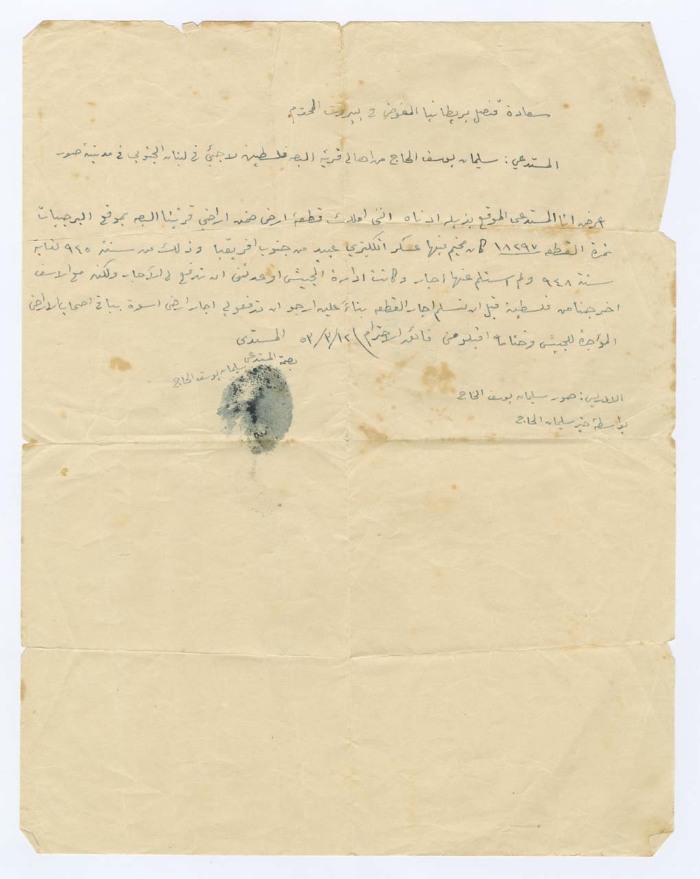 سعادة قنصل بريطانيا المفوض في بيروت المحترم
المستدعي: سليمان يوسف الحاج من اهالي قرية البصه فلسطين لاجئ في لبنان الجنوبي في مدينة صور
اعرض انا المستدعي الموقع بذيله ادناه انني املك قطعة ارض ضمن اراضي قريتنا البصه بموقع البرجيات
نمرة القطعه ١٨٤٩٧ كان مخيم فيها عسكر انكليزي عبيد من جنوب افريقيا وذلك من سنة ٩٤٥ لغاية
سنة ٩٤٨ ولم استلم عنها اجار وكانت ادارة الجيش اوعدتني ان تدفع لي الاجار ولكن مع الاسف
اخرجنا من فلسطين قبل ان نستلم اجار القطعه بناءً عليه ارجو ان تدفعو لي اجار ارضي اسوة بباقي اصحاب الاراضي
المؤجرة للجيش وختاماً اقبلو مني فائق الاحترام ٥٣/٣/١٢ المستدعي
بصمة المستدعي
سليمان يوسف الحاج
الادرس: صور سليمان يوسف الحاج
بواسطة سليمان الحاج